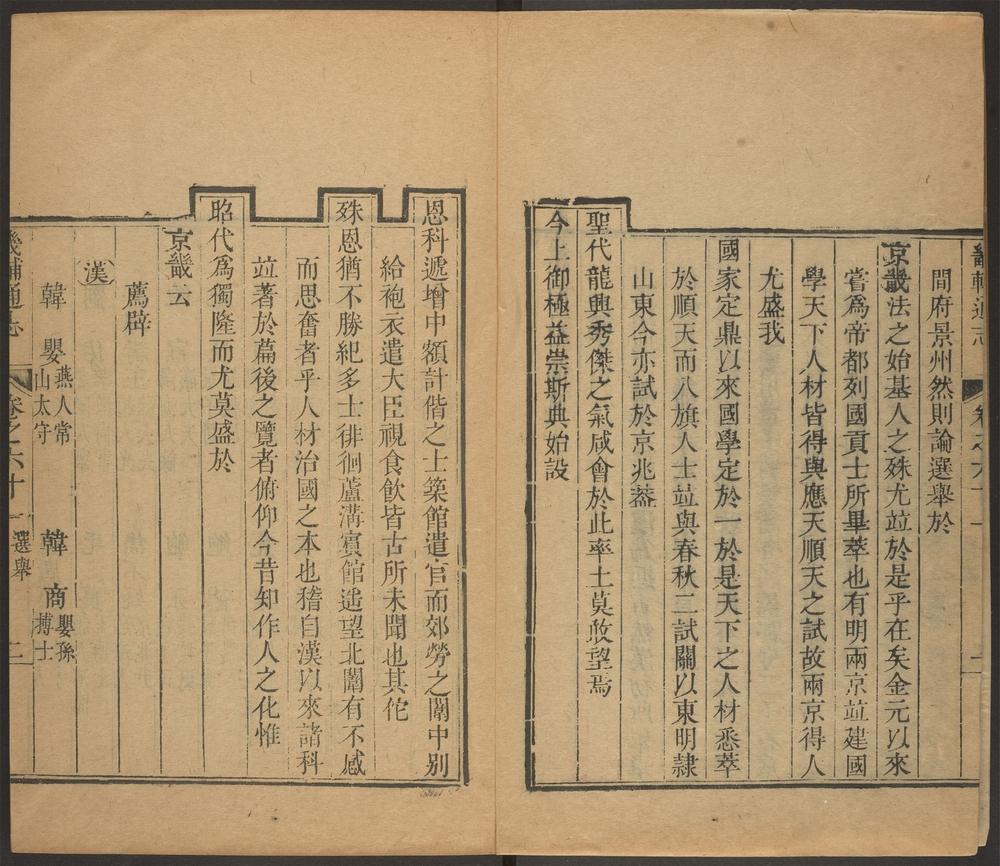 畿輔通志 卷之六十一 二
間府景州然則論選舉於
京畿法之始基人之殊尤竝於是乎在矣金元以來
嘗爲帝都列國貢士所畢萃也有明兩京竝建國
學天下人材皆得與應天順天之試故兩京得人
尤盛我
國家定鼎以來國學定於一於是天下之人材悉萃
於順天而八旗人士竝與春秋二試關以東明隷
山東今亦試於京兆葢
聖代龍興秀傑之氣咸會於此率土莫敢望焉
今上御極益崇斯典始設
恩科遞增中額計偕之士築館遣官而郊勞之闈中別
給袍衣遣大臣視食飲皆古所未聞也其佗
殊恩猶不勝紀多士徘徊蘆溝賓館遥望北闈有不感
而思奮者乎人材治國之本也稽自漢以來諸科
竝著於篇後之覽者俯仰今昔知作人之化惟
昭代爲獨隆而尤莫盛於
京畿云
薦辟
漢
韓 嬰 燕人常山太守 韓 商 嬰孫博士
畿輔通志 卷之六十一 選舉 二